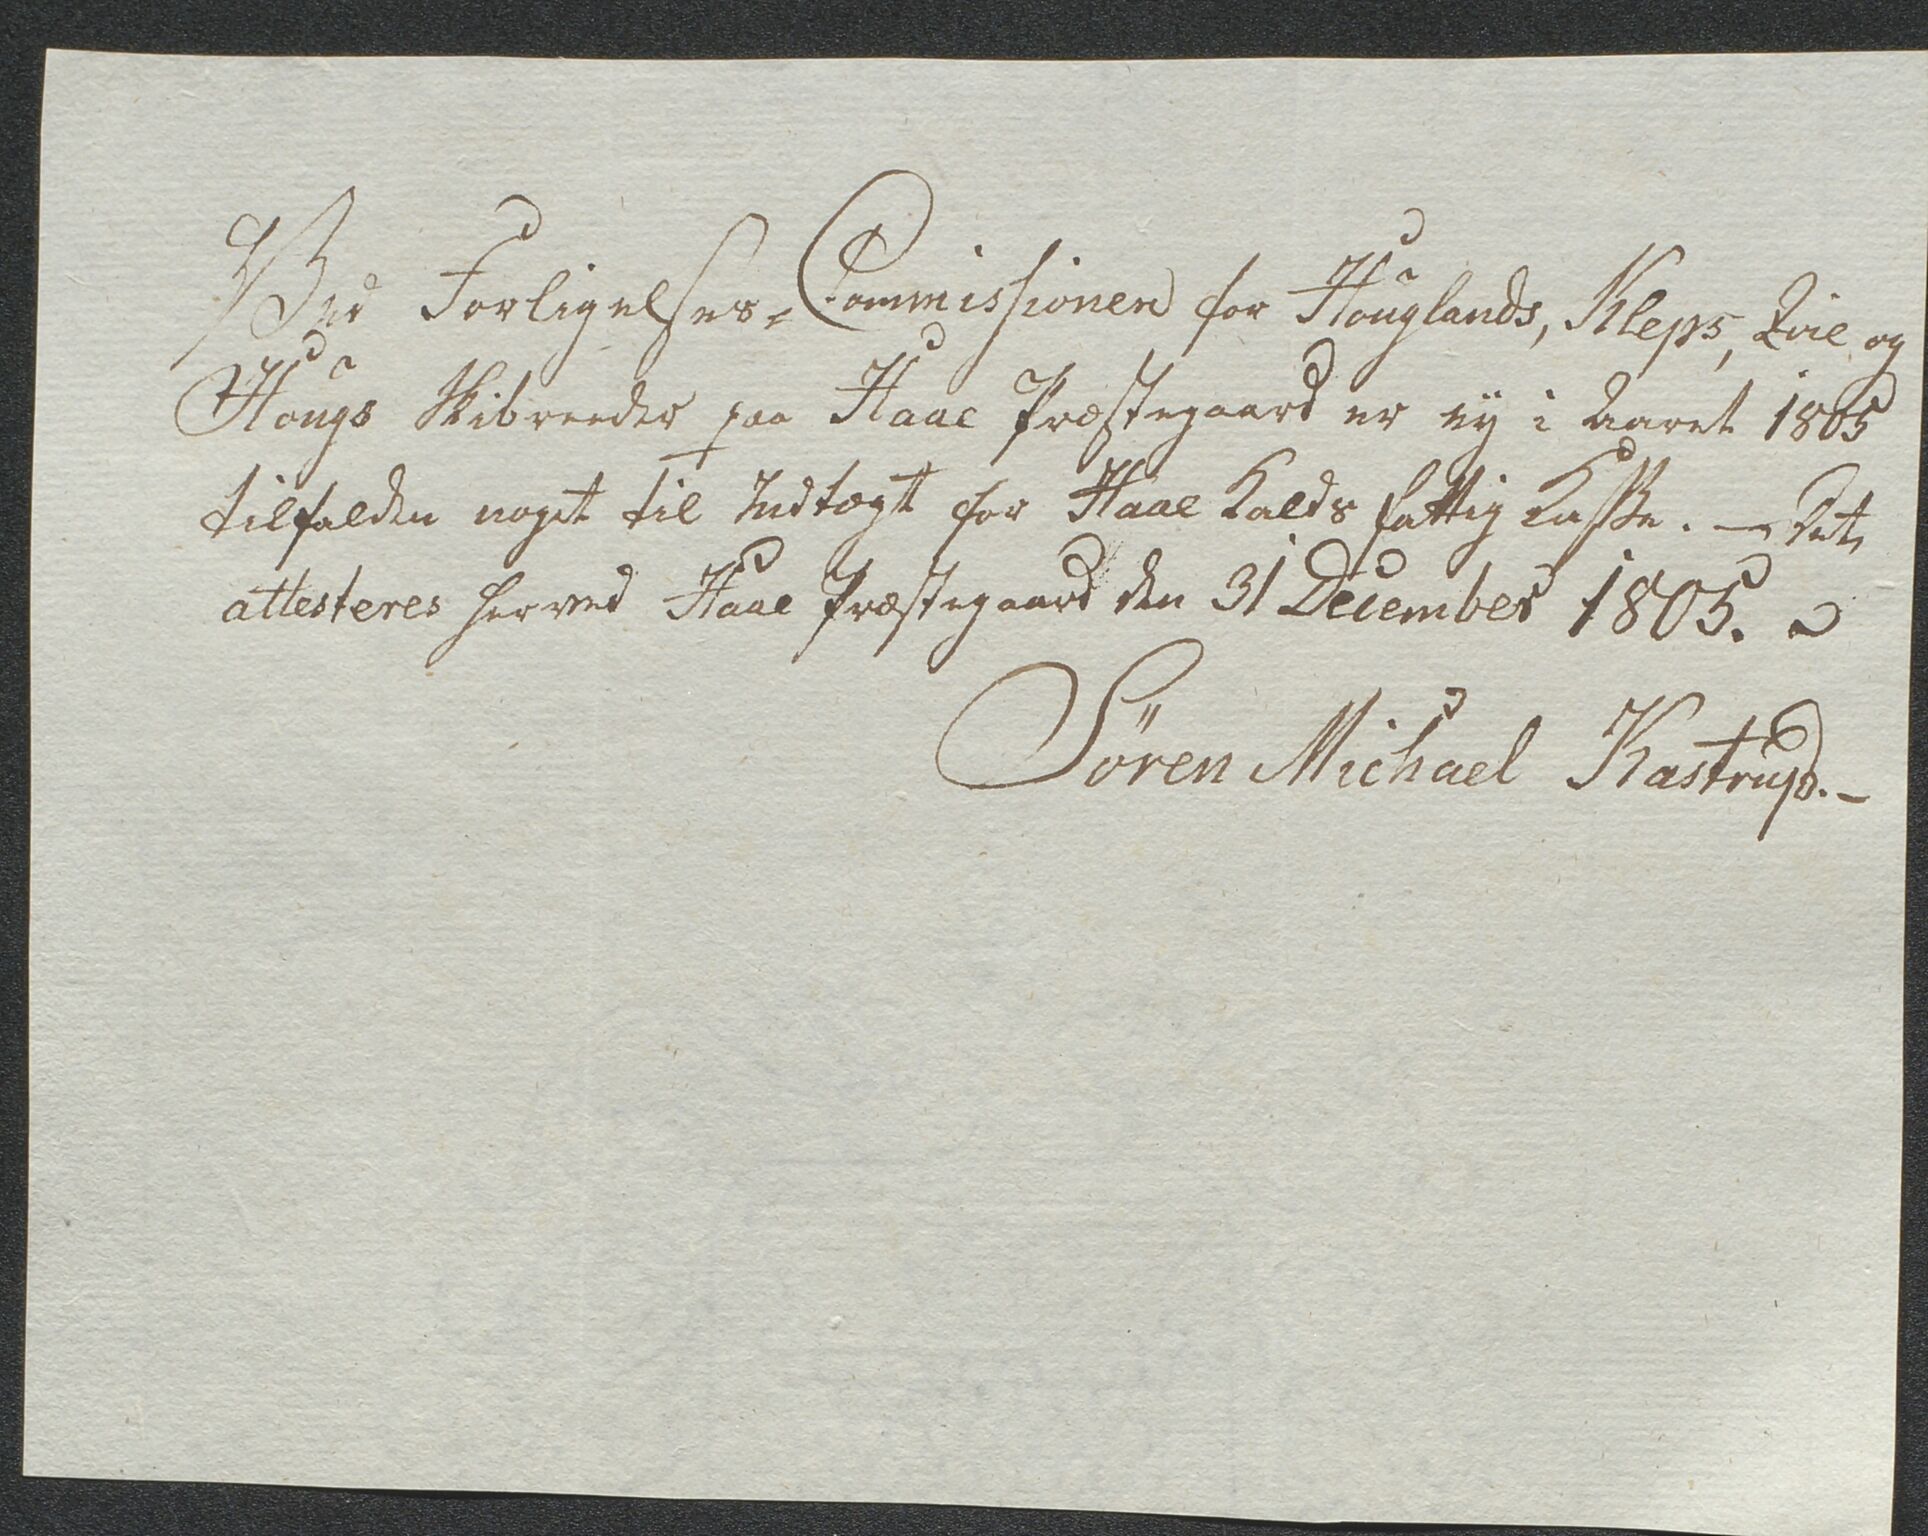 Ved Forligelses-Commissionen for Houglands, Kleps, Qvie og
Hougs Skibreeder paa Haae Præstegaard er ey i Aaret 1805
tilfalden noget til Indtægt for Haae Kalds Fattig Kasse. — Det
attesteres herved Haae Præstegaard den 31 December 1805.
Sören Michael Kastrup. –